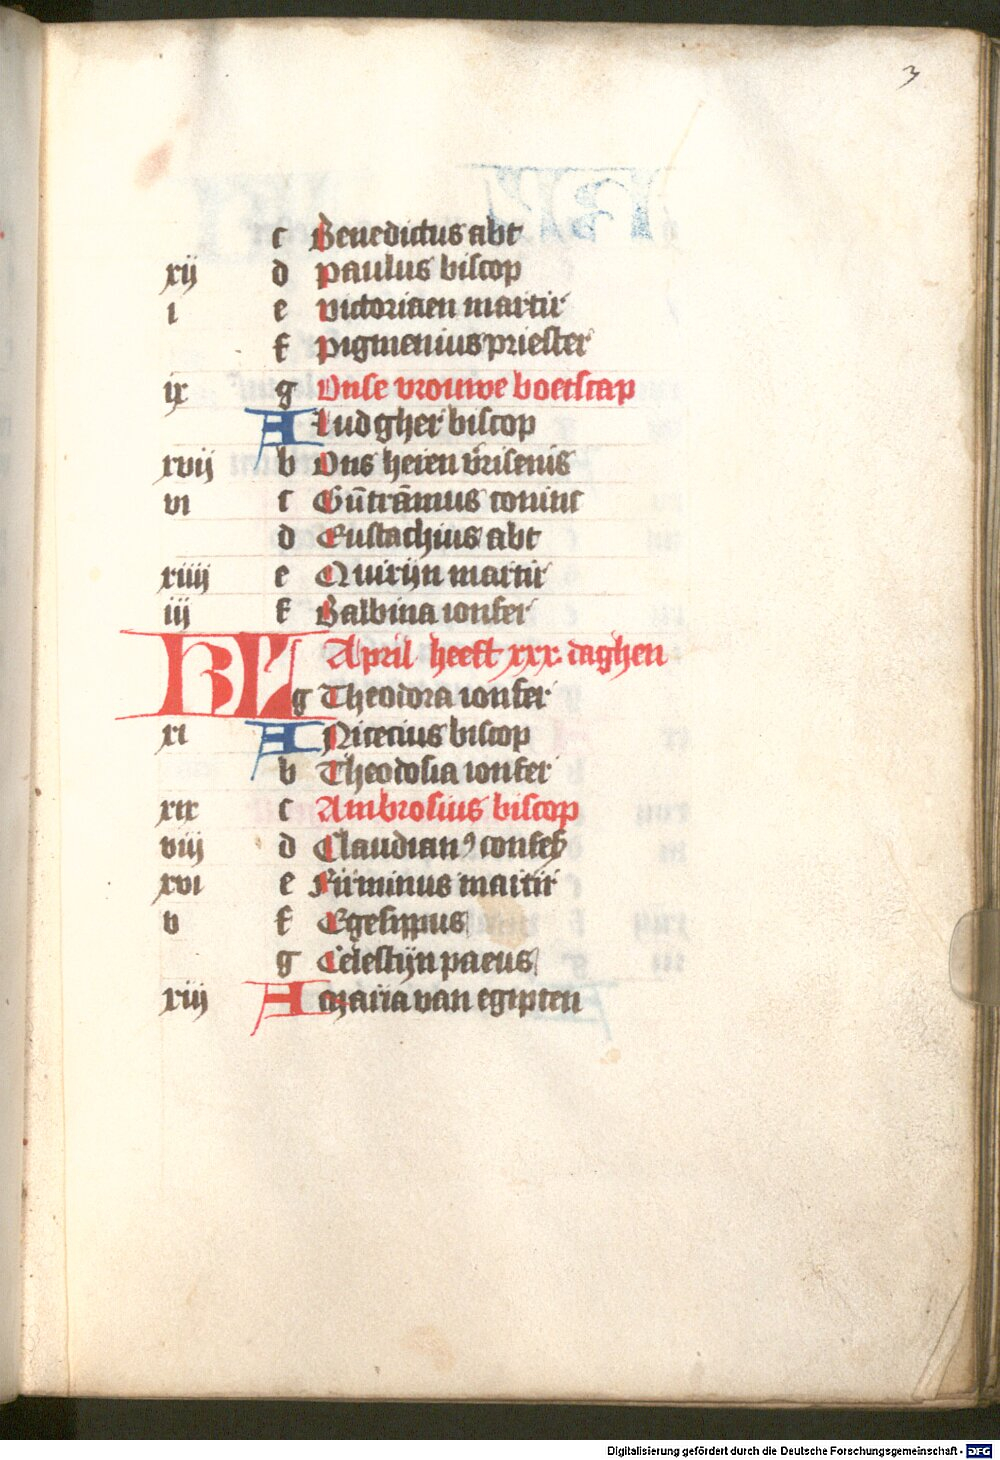 3
c Benedictus abt
xij d paulus biscop
i e victoriaen martir
f pigmenius priester
ix g Onse vrouwe boetscap
A Ludgher biscop
xvij b Ons heren v̄risenis
vi c Gūtrāmus coninc
d Eustachius abt
xiiij e Quirijn martir
iij f Balbina ionfer
KL April heeft xxx daghen
g Theodora ionfer
xi A Nicecius biscop
b Theodosia ionfer
xix c Ambrosius biscop
viij d Claudianꝰ confes
xvi e Firminus martir
v f Egesippus
g Celestijn paeus
xiij A Maria van egipten
Digitalisierung gefördert durch die Deutsche Forschungsgemeinschaft - DFG